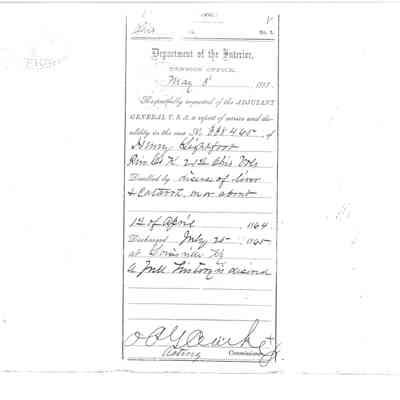 Department of the Interior,
PENSION OFFICE,
May 8
Respectfully requested of the ADJUTANT
GENERAL U. S. A. a report of service and dis-
ability in the case No. 338465, of
Henry Lightfoot
Co K Ohio Vols
Disabled by disease of liver
& Catarrh, on or about
1st of April 1864
Discharged July 25 1865
at Louisville Ky
A Full history is desired
O P G Clarke
Acting Commissioner